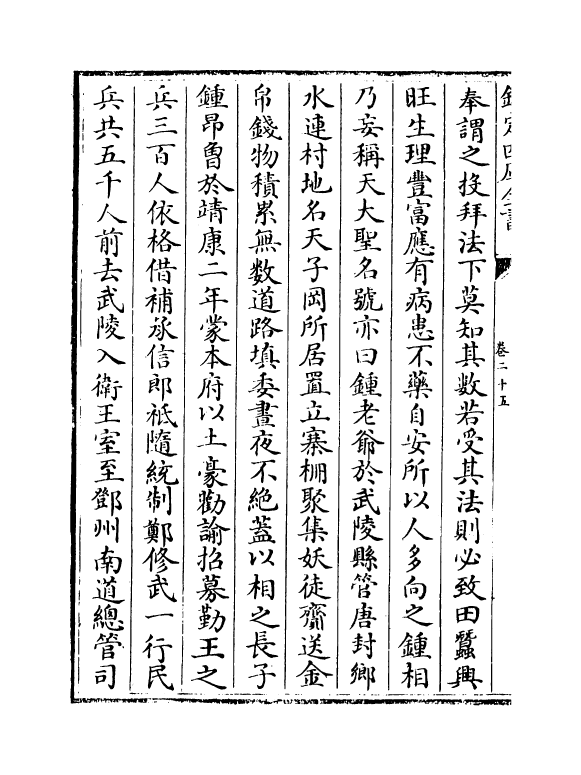 欽定四庫全書
卷二十五
奉謂之投拜法下莫知其數若受其法則必致田蠶興
旺生理豐富應有病患不藥自安所以人多向之鍾相
乃妄稱天大聖名號亦曰鍾老爺於武陵縣管唐封鄉
水連村地名天子岡所居置立寨柵聚集妖徒齎送金
帛錢物積累無數道路填委晝夜不絶蓋以相之長子
鍾昂曾於靖康二年蒙本府以土豪勸諭招募勤王之
兵三百人依格借補承信郎祗隨統制鄭修武一行民
兵共五千人前去武陵入衛王室至鄧州南道總管司